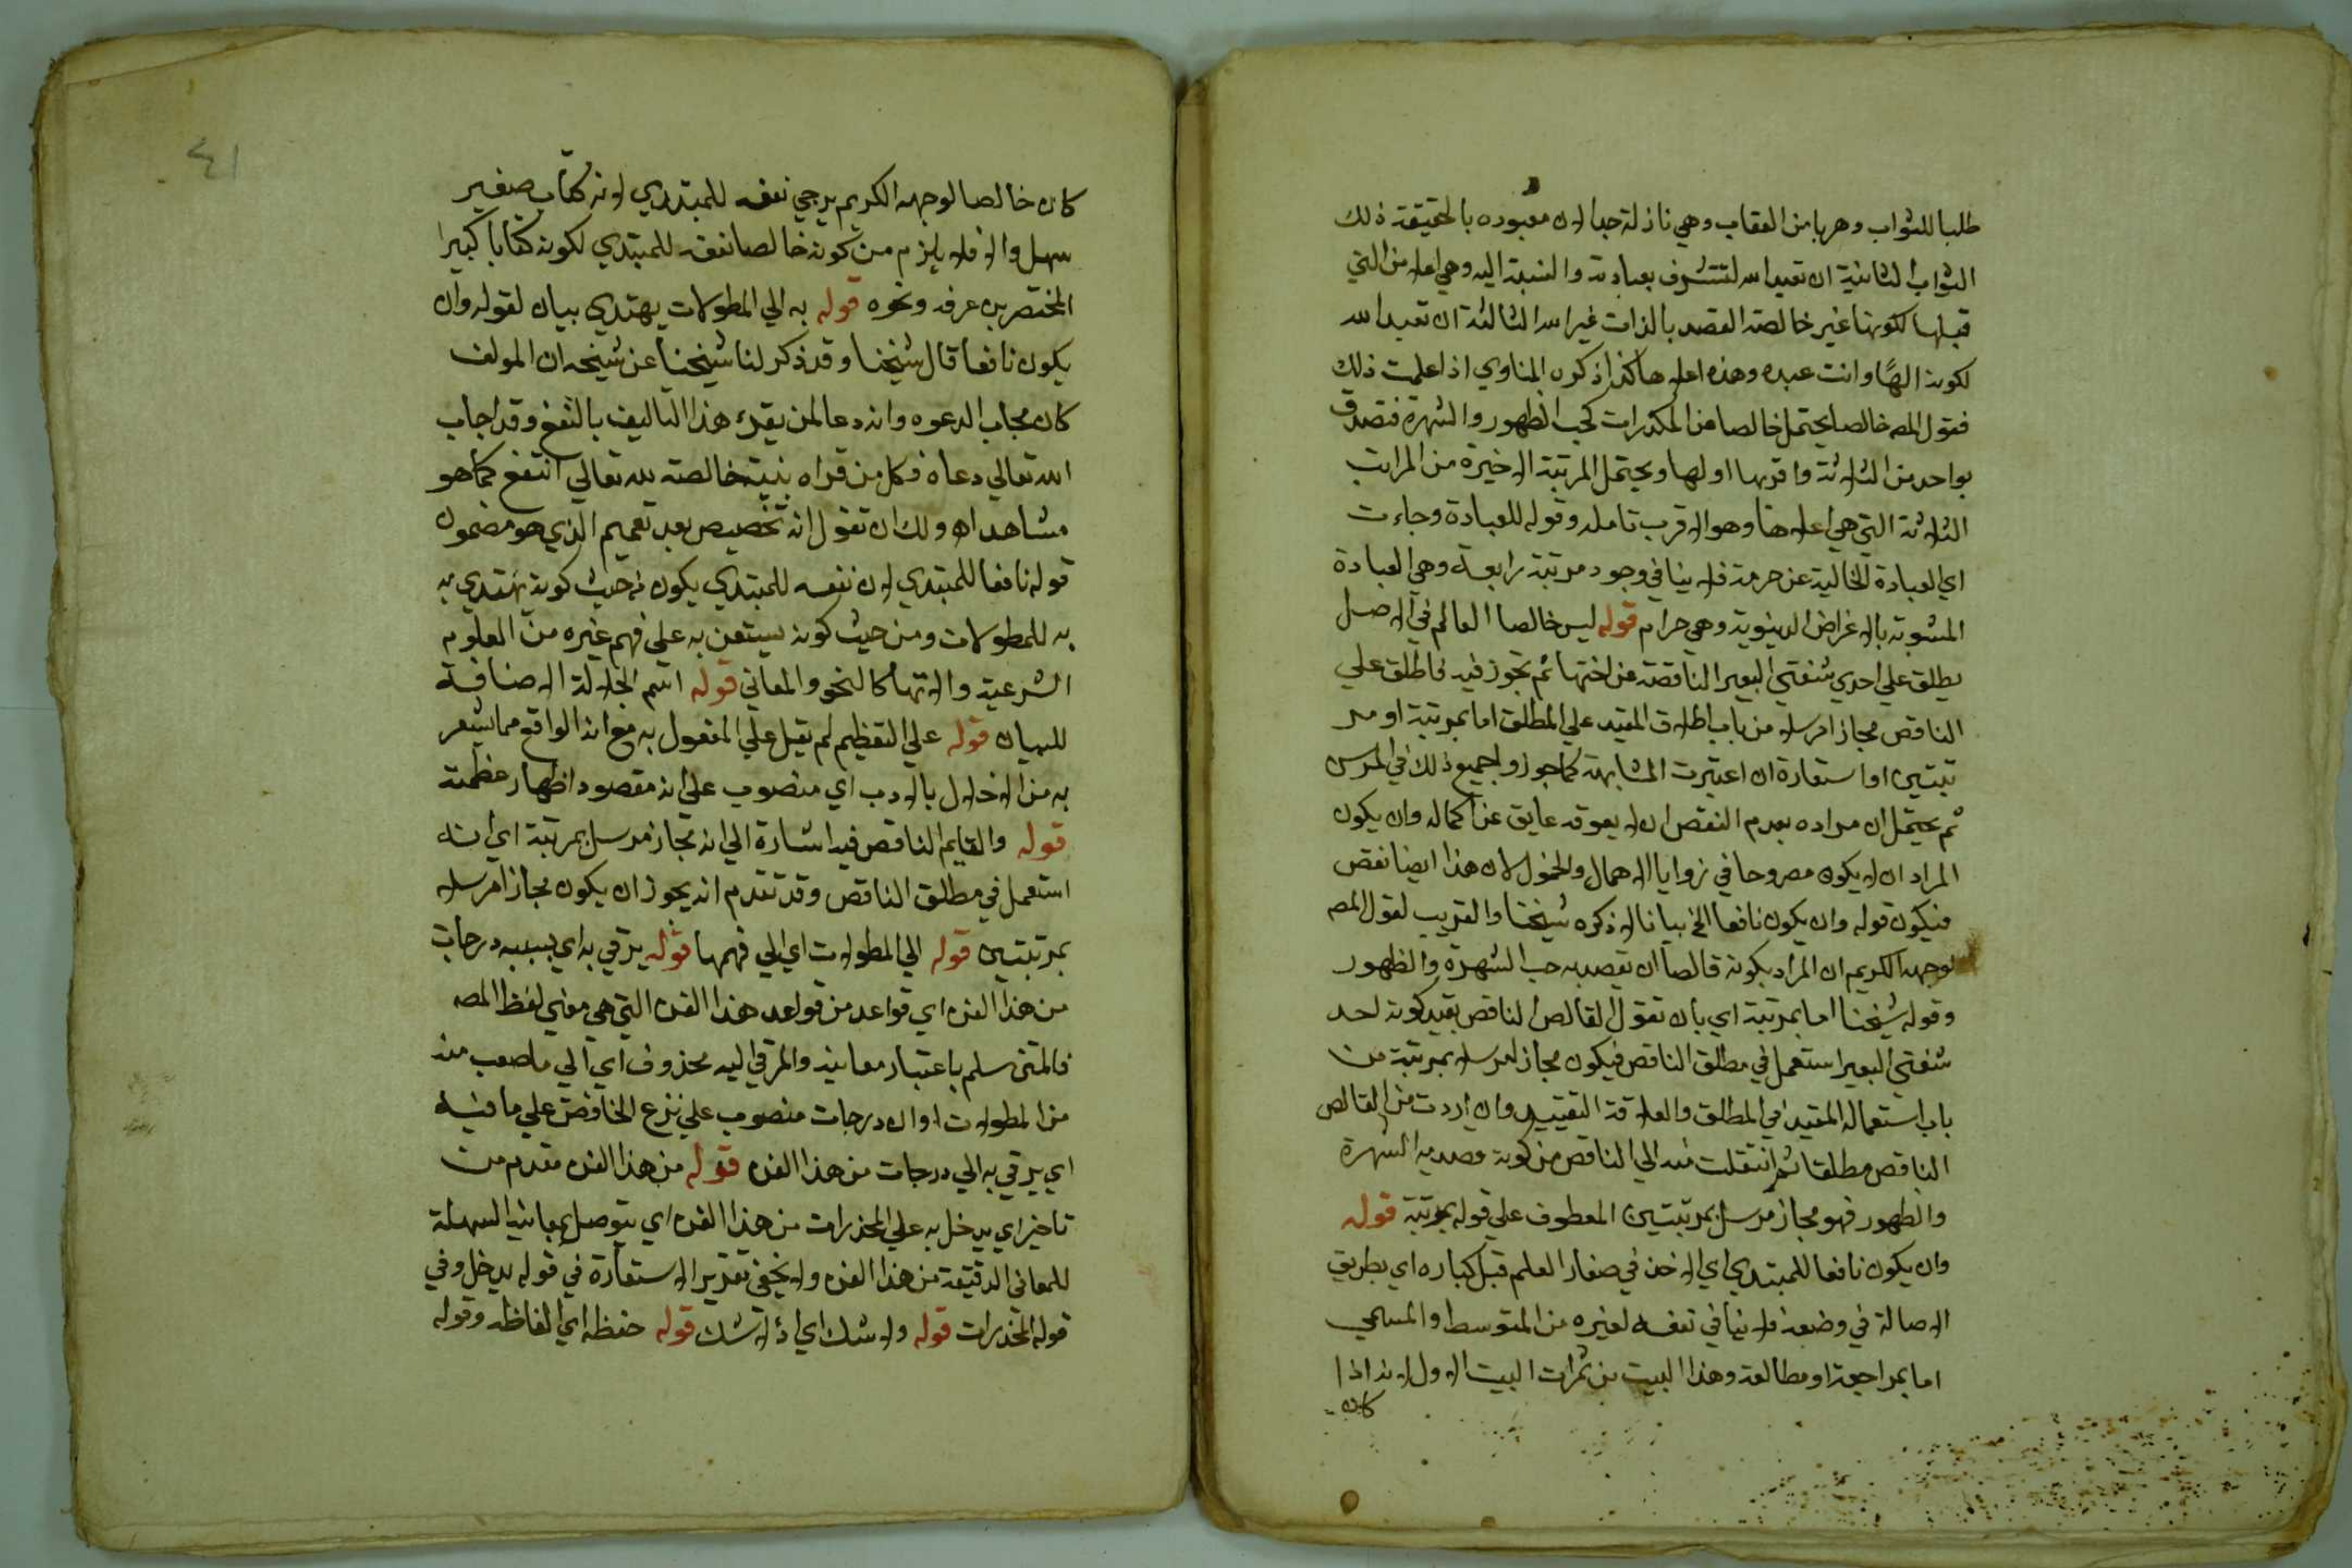 طلبا للثواب وهربا من العقاب وهي نازلة جدا لان معبوده بالحقيقة ذلك
الثواب الثانية ان تعبد الله لتتشرف بعبادته والنسبة اليه وهي اعلا من التي
قبلها لكونها غير خالصة القصد بالذات غير الله الثالثة ان تعبد الله
لكونه الهًا وانت عبده وهذه اعلاها كذا ذكره المناوي اذا علمت ذلك
فقول المص خالصا يحتمل خالصا من المكدرات كحب الظهور والشهرة فتصدق
بواحد من الثلاثة واقربها اولها ويحتمل المرتبة الاخيرة من المراتب
الثلاثة التي هي اعلاها وهو الاقرب تامله وقوله للعبادة وجاءت
اي العبادة الخالية عن حرمة فلا ينافي وجود مرتبة رابعة وهي العبادة
المشوبة بالاغراض الدنيوية وهي حرام قوله ليس خالصا القالص في الاصل
يطلق علي احدي شفتي البعير الناقصة عن اختها ثم تجوز فيه فاطلق علي
الناقص مجازا مرسلا من باب اطلاق المقيد علي المطلق اما بمرتبة او مر
تبتين او استعارة ان اعتبرت المشابهة كما جوزوا جميع ذلك في المرسن
ثم يحتمل ان مراده بعدم النقص ان لا يعوقه عايق عن اكماله وان يكون
المراد ان لا يكون مطروحا في زوايا الاهمال والخمول لان هذا ايضا نقص
فيكون قوله وان يكون نافعا الخ بيانا لا ذكره شيخنا والقريب لقول المص
لوجهه الكريم ان المراد بكونه قالصا ان يقصد به حب الشهرة والظهور
وقوله شيخنا اما بمرتبة اي بان تقول القالص الناقص بقيد كونه احد
شفتي البعير استعمل في مطلق الناقص فيكون مجازا مرسلا بمرتبة من
باب استعماله المقيد في المطلق والعلاقة التقييد وان اردت من القالص
الناقص مطلقا ثم انتقلت منه الي الناقص من كونه قصد به الشهرة
والظهور فهو مجاز مرسل بمرتبتين المعطوف علي قوله بمرتبة قوله
وان يكون نافعا للمبتدي اي الاخذ في صغار العلم قبل كباره اي بطريق
الاصالة في وضعه فلا ينافي نفعه لغيره من المتوسط والمنتهي
اما بمراجعة او مطالعة وهذا البيت من ثمرات البيت الاول لانه اذا
كان
٤١
كان خالصا لوجهه الكريم يرجي نفعه للمبتدي لانه كتاب صغير
سهل والا فلا يلزم من كونه خالصا نفعه للمبتدي لكونه كتابا كبيرا
المختصر بن عرفه ونحوه قوله به الي المطولات يهتدي بيان لقوله وان
يكون نافعا قال شيخنا وقد ذكر لنا شيخنا عن شيخه ان المولف
كان مجاب الدعوه وانه دعا لمن يقرء هذا التاليف بالنفع وقد اجاب
الله تعالي دعاه فكل من قراه بنية خالصة لله تعالي انتفع كما هو
مشاهد اه ولك ان تقول انه تخصيص بعد تعميم الذي هو مضمون
قوله نافعا للمبتدي لان نفعه للمبتدي يكون من حيث كونه يهتدي به
به للمطولات ومن حيث كونه يستعن به علي فهم غيره من العلوم
الشرعية والاتها كالنحو والمعاني قوله اسم الجلالة الاضافة
للبيان قوله علي التعظيم لم يقل علي المفعول به مع انه الواقع مما يشعر
به من الاخلال بالادب اي منصوب علي انه مقصود اظهار عظمته
قوله والقايم الناقص فيه اشارة الي انه مجاز مرسل بمرتبة اي انه
استعمل في مطلق الناقص وقد تقدم انه يجوز ان يكون مجازا مرسلا
بمرتبتين قوله الي المطولات اي الي فهمها قوله يرقي به اي بسببه درجات
من هذا الفن اي قواعد من قواعد هذا الفن التي هي معني لفظ المص
فالمتن سلم باعتبار معانيه والمرقي اليه محذوف اي الي ما صعب منه
من المطولات او ان درجات منصوب علي نزع الخافض علي ما فيه
اي يرقي به الي درجات من هذا الفن قوله من هذا الفن مقدم من
تاخير اي يدخل به علي المخدرات من هذا الفن اي يتوصل بمعانيه السهلة
للمعاني الدقيقة من هذا الفن ولا يخفي تقدير الاستعارة في قوله يدخل وفي
قوله المخدرات قوله ولا شك اي اذ لا شك قوله حفظه اي الفاظه وقوله